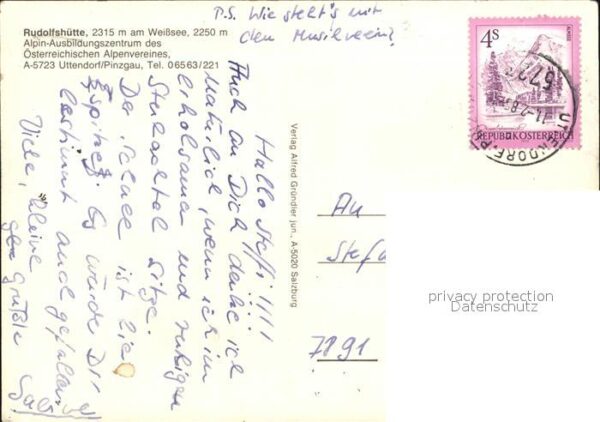 Rudolfshütte, 2315 m am Weißsee, 2250 m
Alpin-Ausbildungszentrum des
Österreichischen Alpenvereines,
A-5723 Uttendorf/Pinzgau, Tel. 0 65 63/221
P.S. Wie steht's mit
den Musikverein?
Hallo Steffi !!!!
Auch an Dich denke ich
natürlich, wenn ich im
erholsamen und ruhigen
Stubachtal sitze.
Der Schnee ist hier
Spitze! Es würde Dir
bestimmt auch gefallen
Viele, kleine
Grüße
Gabi
Verlag Alfred Gründler jun., A-5020 Salzburg
4S
REPUBLIK ÖSTERREICH
5723
UTTENDORF
An
Stefa
7891
privacy protection
Datenschutz